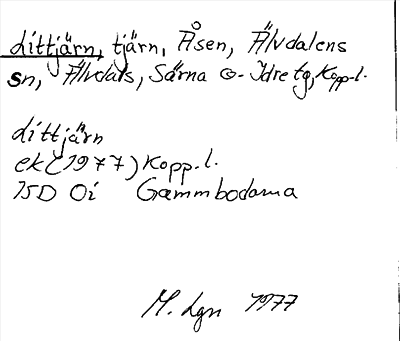 Littjärn, tjärn, Åsen, Älvdalens
sn, Älvdals, Särna o. Idre tg, Kopp. l.
Littjärn
ek (1977) Kopp. l.
15D 0i Gammbodarna
M. Lgn 1977